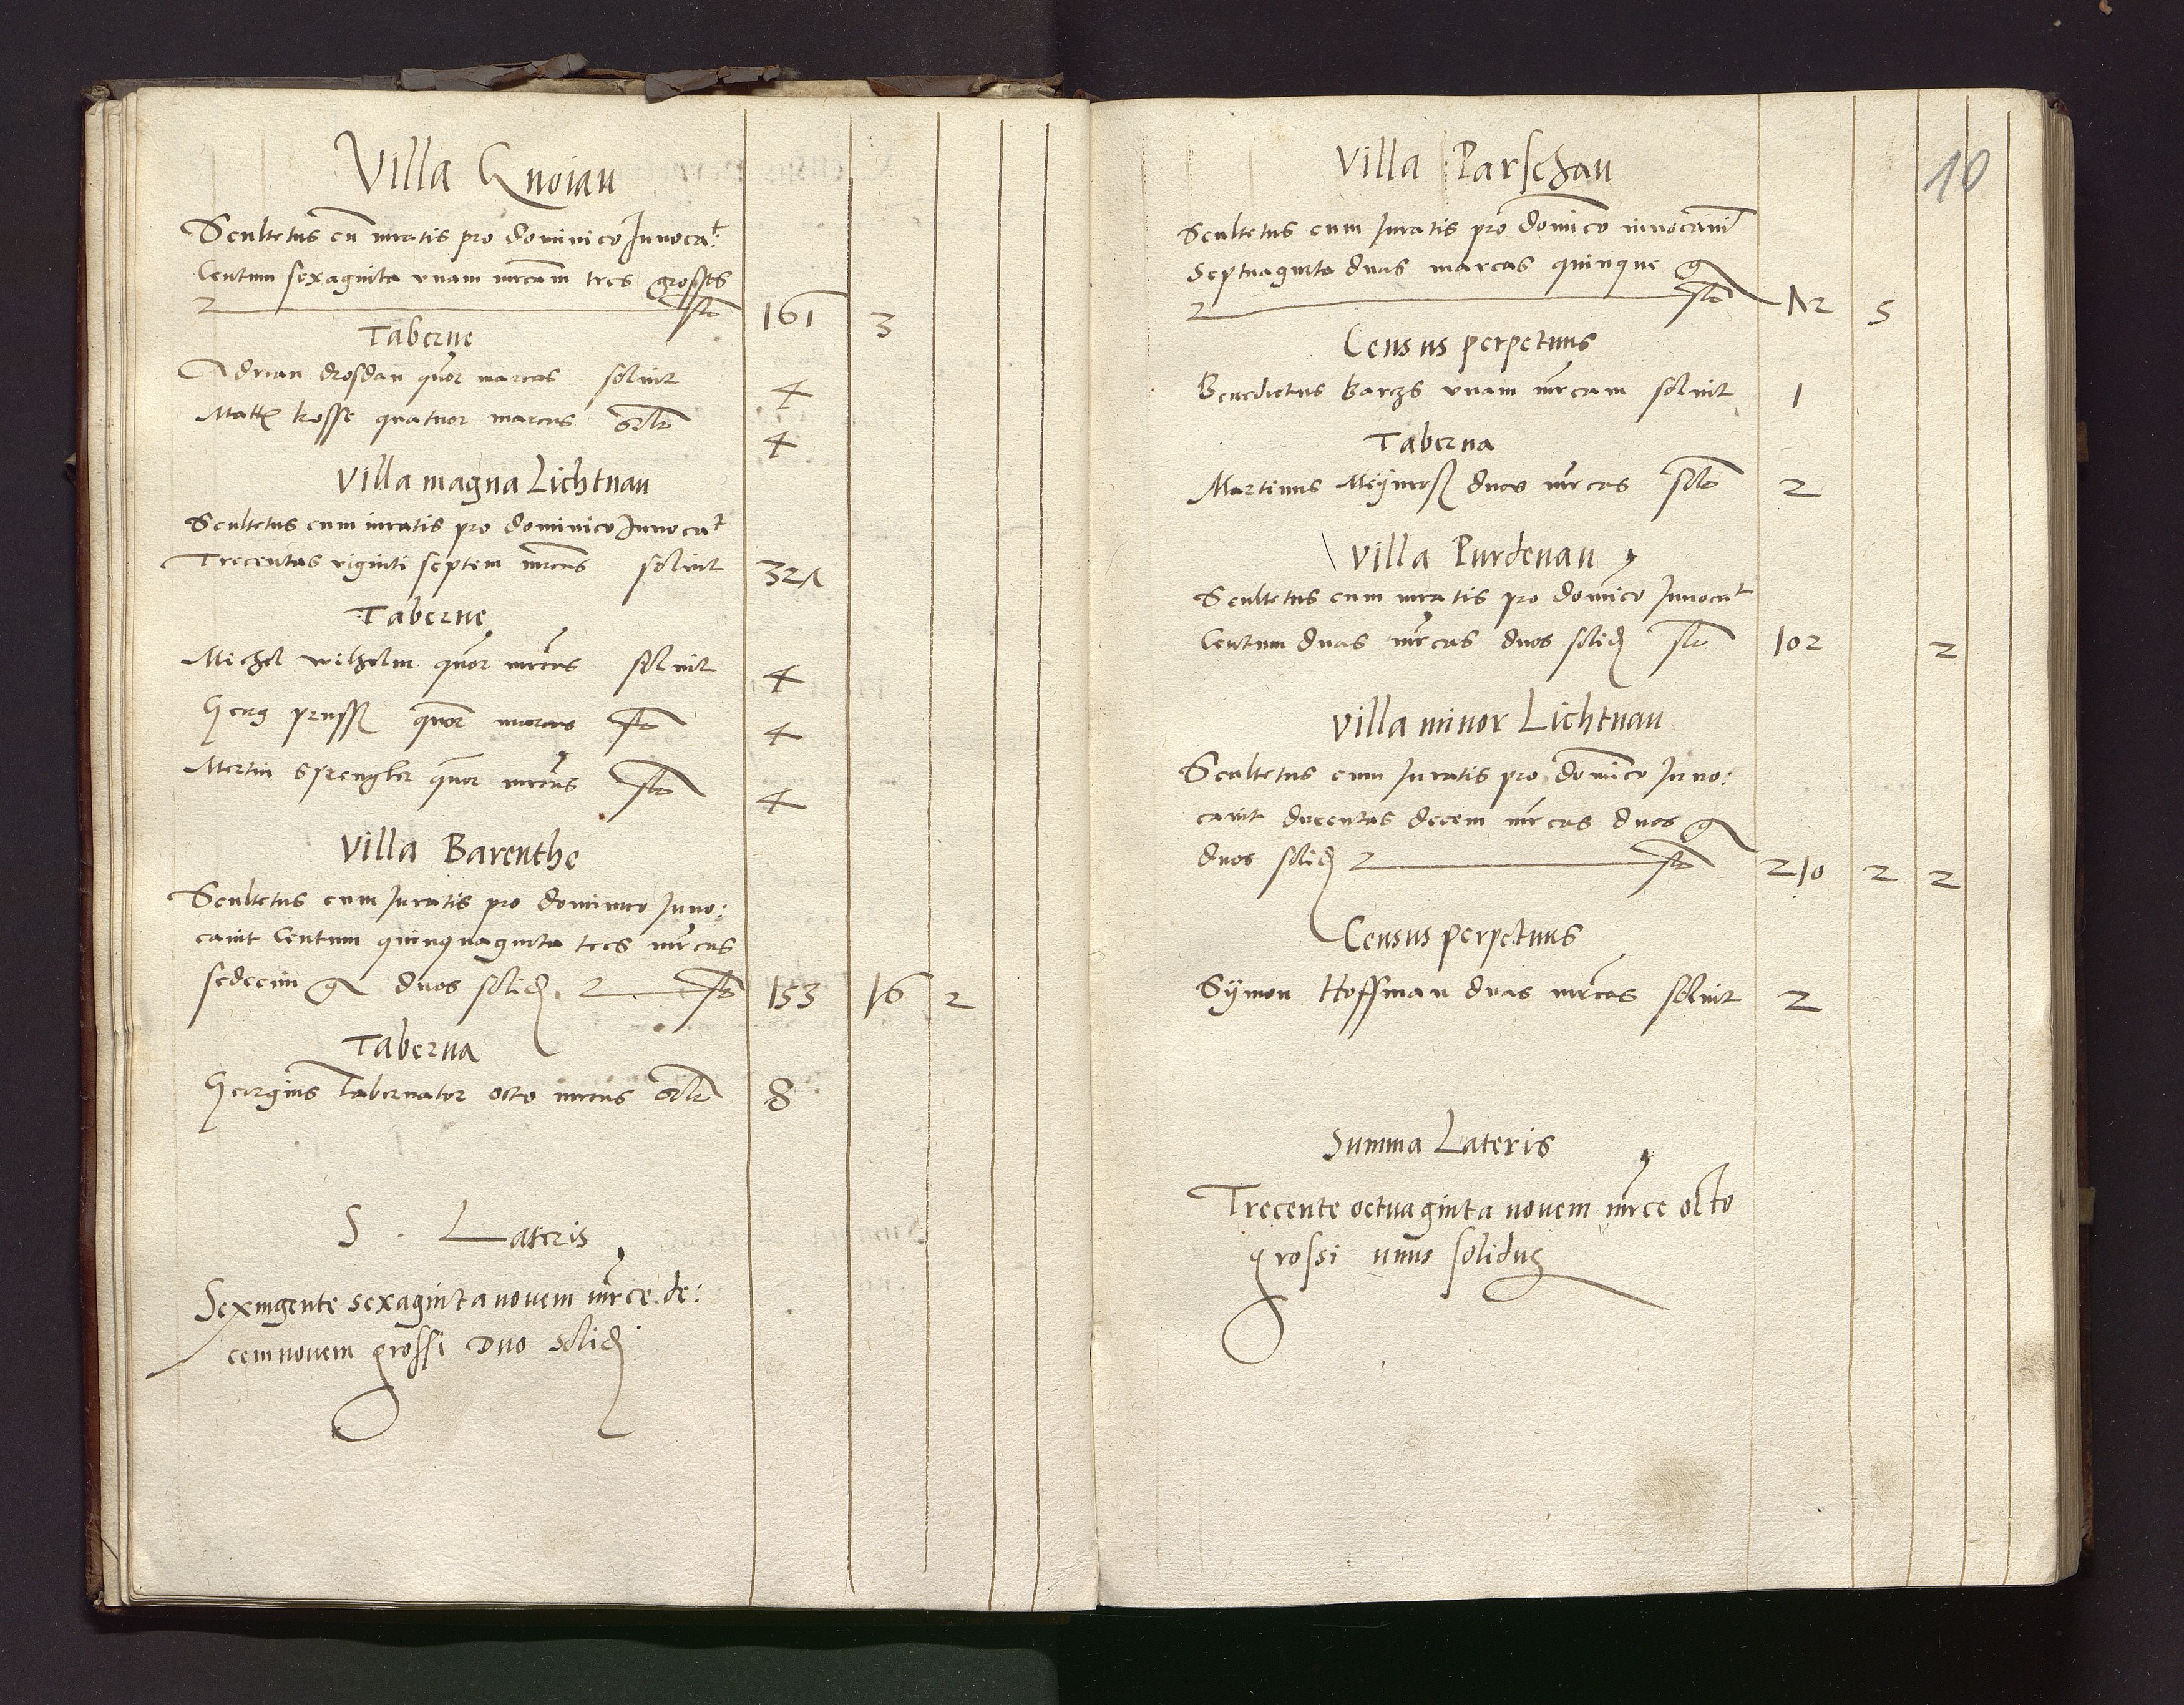 Villa Knoiau
Scultetus cu iuratis pro dominico Innoca.t
Centum sexaginta unam mrcam tres grossos
2 slt 161 3
Taberne
Adrian drosdau quor marcas soluit 4
Matt kosse quatuor marcas solt 4
Villa magna Lichtnau
Scultetus cum iuratis pro dominico Innocat
Trecentas viginti septem mrcas soluit 327
Taberne
Michel wilhelm quor mrcas soluit 4
Georg preuss quor marcas slt 4
Mertin Sprengler quor mrcas slt 4
Villa Barenthe
Scultetus cum Iuratis pro dominico Inno:
cauit Centum quinquaginta tres mrcas
sedecim g duos solid 2 slt 153 16 2
Taberna
Georgius Tabernator octo mrcas solt 8
S. Lateris
Sexingente sexaginta novem mrce de:
cemnovem grossi Duo Solid
10
Villa Parschau
Scultetus cum Iuratis pro domico innocauit
Septuaginta duas marcas quinque g
2 slt 72 5
Census perpetuus
Benedictus barczs unam mrcam soluit 1
Taberna
Martinus duas mrcas solt 2
Villa Purdenau
Scultetus cum iuratis pro domico Innocat
Centum duas mrcas duos solid slt 102 2
Villa minor Lichtnau
Scultetus cum Iuratis pro domico Inno:
cauit ducentas decem mrcas duos g
duos solid 2 slt 210 2 2
Census perpetuus
Symon Hoffman duas mrcas soluit 2
Summa Lateris
Trecente octuaginta novem mrce octo
grossi unus solidus